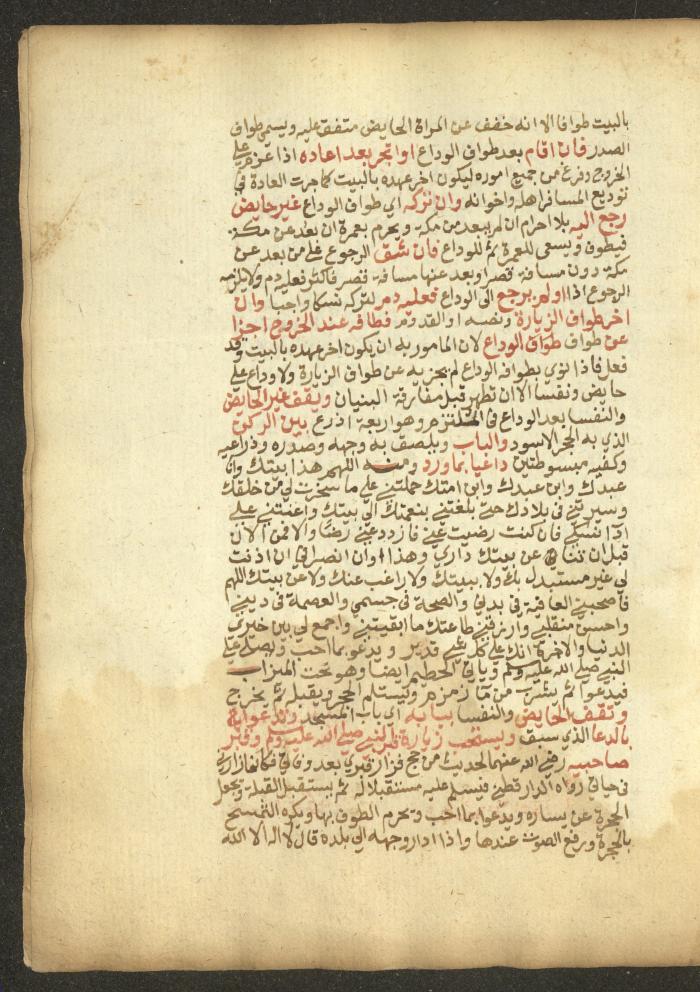 بالبيت طوافا الا انه خفف عن المراة الحايض متفق عليه ويسمي طواف
الصدر فان اقام بعد طواف الوداع او اتجر بعد اعاده اذا عزم علي
الخروج وفرغ من جميع اموره ليكون اخر عهده بالبيت كما جرت العادة في
توديع المسافر اهله واخوانه وان تركه اي طواف الوداع غير حايض
رجع اليه بلا احرام ان لم يبعد من مكة ويحرم بعمرة ان بعد عن مكة
فيطوف ويسعي للعمرة ثم للوداع فان شق الرجوع علي من بعد عن
مكة دون مسافة قصر او بعد عنها مسافة قصر فاكثر فعليه دم ولا يلزمه
الرجوع اذا او لم يرجع الي الوداع فعليه دم لتركه نسكا واجبا وان
اخر طواف الزيارة ونصه او القدوم فطافه عند الخروج اجزا
عن طواف طواف الوداع لان المامور به ان يكون اخر عهده بالبيت وقد
فعل فاذا نوي بطوافه الوداع لم يجزيه عن طواف الزيارة ولا وداع علي
حايض ونفسا الا ان تطهر قبل مفارقة البنيان ويقف غير الحايض
والنفسا بعد الوداع في الملتزم وهو اربعة اذرع بين الركن
الذي به الحجر الاسود والباب ويلصق به وجهه وصدره وذراعيه
وكفيه مبسوطتين داعيا بما ورد ومنه اللهم هذا بيتك وانا
عبدك وابن عبدك وابن امتك حملتني علي ما سخرت لي من خلقك
وسيرتني في بلادك حتي بلغتني بنعمتك الي بيتك واعنتني علي
ادا نسكي فان كنت رضيت عني فازدد عني رضا والا فمن الان
قبل ان تنا عن بيتك داري وهذا اوان انصرافي ان اذنت
لي غير مستبدل بك ولا ببيتك ولا راغب عنك ولا عن بيتك اللهم
فاصحبني العافية في بدني والصحة في جسمي والعصمة في ديني
واحسن منقلبي وارزقني طاعتك ما ابقيتني واجمع لي بين خيري
الدنيا والاخرة انك علي كل شي قدير ويدعو بما احب ويصلي علي
النبي صلي الله عليه وسلم وياتي الحطيم ايضا وهو تحت الميزاب
فيدعوا ثم يشرب من ما زمزم ويستلم الحجر ويقبله ثم يخرج
وتقف الحايض والنفسا ببابه اي باب المسجد وتدعوا به
بالدعا الذي سبق ويستحب زيارة قبر النبي صلي الله عليه وسلم وقبر
صاحبيه رضي الله عنهما لحديث من حج فزار قبري بعد وفاتي فكانما زارني
في حياتي رواه الدار قطني فيسلم عليه مستقبلا له ثم يستقبل القبلة ويجعل
الحجرة عن يساره ويدعوا بما احب ويحرم الطوف بها ويكره التمسح
بالحجرة ورفع الصوت عندها واذا ادار وجهه الي بلده قال لا اله الا الله